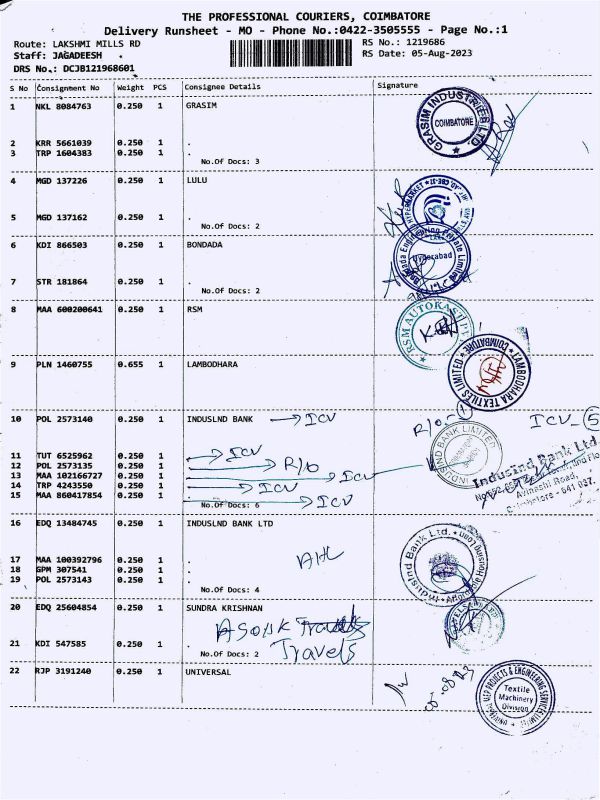 THE PROFESSIONAL COURIERS, COIMBATORE
Delivery Runsheet - MO - Phone No.:0422-3505555 - Page No.:1
Route: LAKSHMI MILLS RD
RS No.: 1219686
Staff: JAGADEESH
RS Date: 05-Aug-2023
DRS No.: DCJB121968601
S No Consignment No Weight PCS Consignee Details Signature
1 NKL 8084763 0.250 1 GRASIM
GRASIM INDUSTRIES LTD.
COIMBATORE
2 KRR 5661039 0.250 1 .
3 TRP 1604383 0.250 1 .
No.Of Docs: 3
4 MGD 137226 0.250 1 LULU
HYPERMARKET
5 MGD 137162 0.250 1 .
No.Of Docs: 2
6 KDI 866503 0.250 1 BONDADA
Bondada Engineering Private Limited
Hyderabad
7 STR 181864 0.250 1 .
No.Of Docs: 2
8 MAA 600200641 0.250 1 RSM
RSM AUTOKAST
9 PLN 1460755 0.655 1 LAMBODHARA
LAMBODHARA TEXTILES LIMITED
COIMBATORE
10 POL 2573140 0.250 1 INDUSLND BANK → ICV
R/O- 1 ICV - 5
INDUSIND BANK LIMITED
11 TUT 6525962 0.250 1 . → ICV
12 POL 2573135 0.250 1 . → R/O
13 MAA 102166727 0.250 1 . → ICV
14 TRP 4243550 0.250 1 . → ICV
15 MAA 860417854 0.250 1 . → ICV
No.Of Docs: 6
IndusInd Bank Ltd
Avinashi Road,
Coimbatore - 641 037.
16 EDQ 13484745 0.250 1 INDUSLND BANK LTD
IndusInd Bank Ltd.
Affordable Housing Loan
17 MAA 100392796 0.250 1 .
18 GPM 307541 0.250 1 .
19 POL 2573143 0.250 1 .
No.Of Docs: 4
20 EDQ 25604854 0.250 1 SUNDRA KRISHNAN
21 KDI 547585 0.250 1 .
Travels
No.Of Docs: 2
22 RJP 3191240 0.250 1 UNIVERSAL
05.08.23
UNIVERSAL MEP PROJECTS & ENGINEERING SERVICES LIMITED
Textile
Machinery
Division